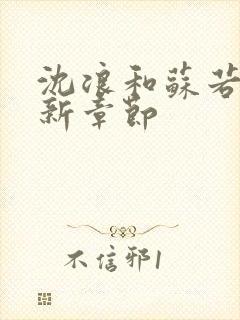 沈浪和蘇若
新章節
不信邪1